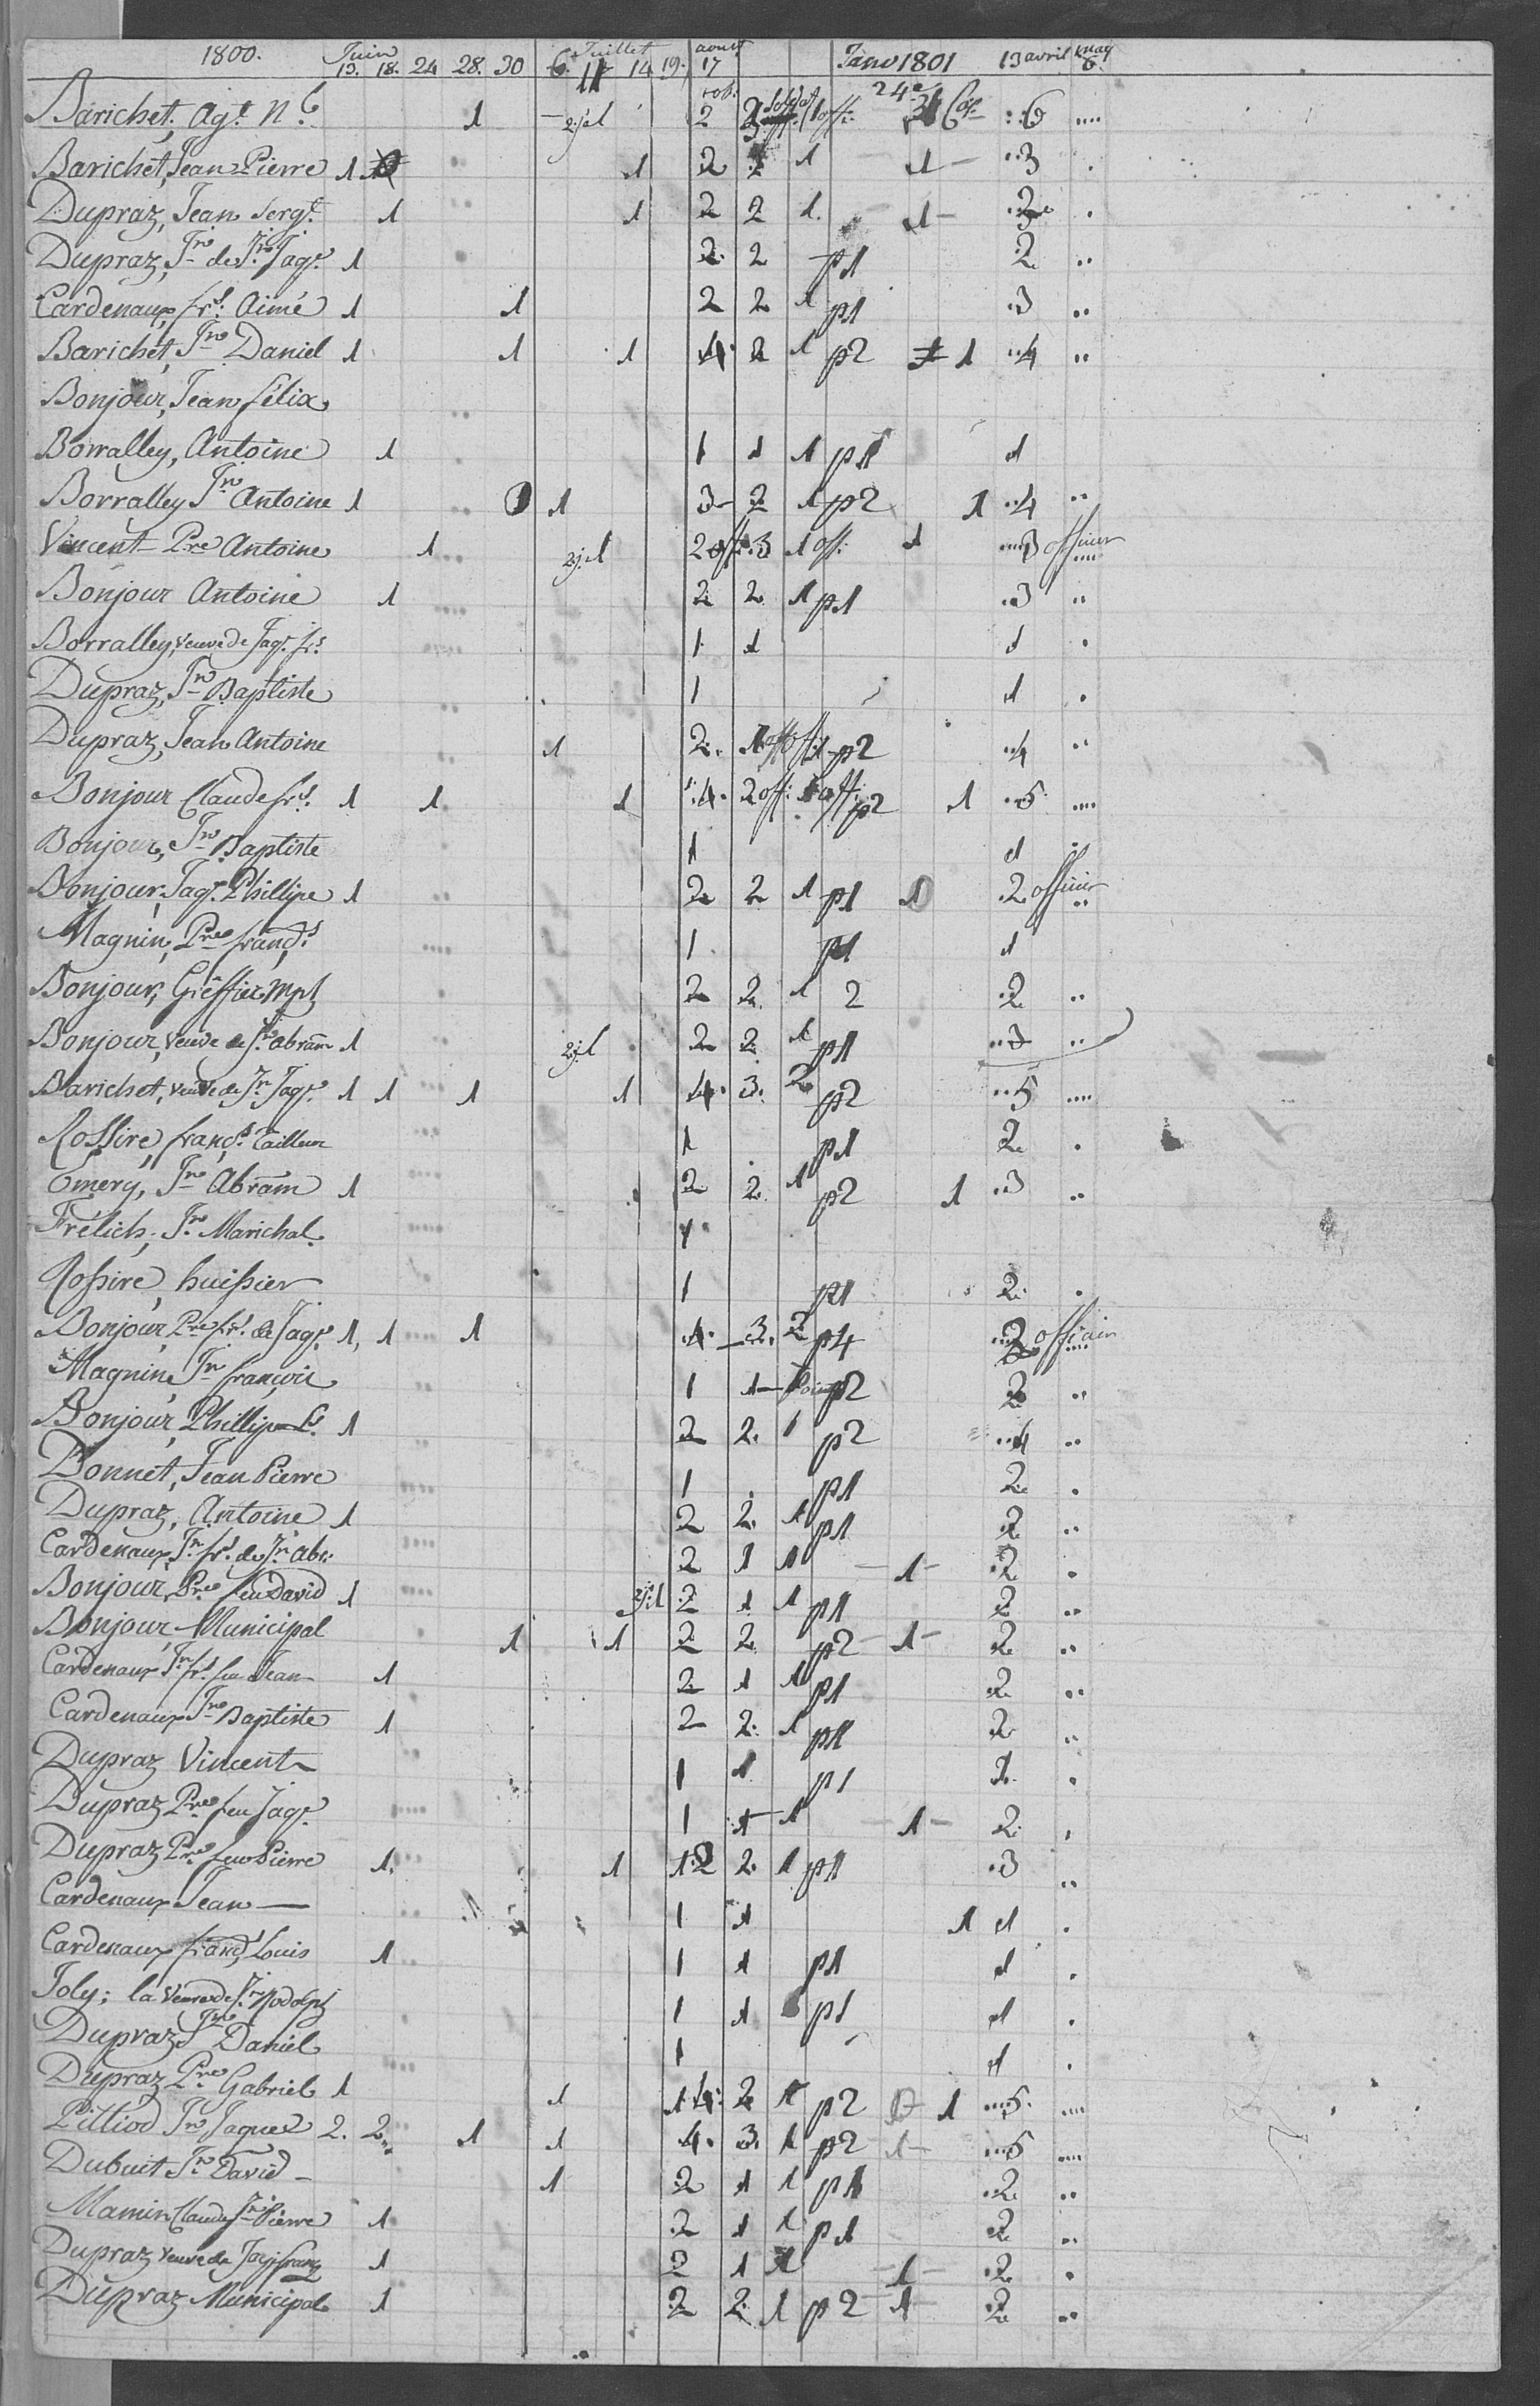 1800. Juin Juillet aoust Janv 1801 13 avril may
13. 18. 24 28. 30 6. 11 14 19. 17 24e 6.
Barichet, Agt. Nl. 1 2 j. 1 2 3 1 offi. 6 ....
Barichet, Jean Pierre 1 .. 1 2 1 1 - 1 - ..3 .
Dupraz, Jean Sergt. 1 .. 1 2 2 1. - 1 - ..2 .
Dupraz, Jn. de Jn. Jaq. 1 . 2. 2 p1 2. ..
Cardenaux, frs. Aimé 1 1 2 2 1 p1 .3 ..
Barichet, Jn. Daniel 1 1 1 4. 2 1 p2 1 ..4 ..
Bonjour, Jean félix ..
Borralley, Antoine 1 . 1 1 1 p1 1
Borralley Jn. Antoine 1 .. 1 3 - 2 1 p2 1 ..4 ..
Vincent Pre Antoine 1 ... 2 j. 1 2 off. 3 1 off. 1 ....3 officier ....
Bonjour Antoine 1 .... 2 2 1 p1 ..3 ..
Borralley, veuve de Jaq. frs. .... 1. 1 1 .
Dupraz, Jn. Baptiste .. 1 1 .
Dupraz, Jean Antoine .. 1 2. 1 offi p2 ..4 ..
Bonjour Claude frs. 1 1 1 4. 2 off. off. p2 1 ..5 ....
Bonjour, Jn. Baptiste 1 1 .
Bonjour, Jaq. Phillipe 1 .. 2 2 1 p1 1 .2 officier ..
Magnin, Pre franç.s .... 1. p1 1
Bonjour, Gréffier Mpl . 2 2. 1 2 .2 ..
Bonjour, veuve de Jn. abram 1 .. 2 j. 1 . 2 2. 1 p1 ...3 ..
Barichet, veuve de Jn. Jaq. 1 1 .... 1 1 4. 3. 2. p2 ...5 ....
Rossire, franç.s Tailleur .... 1 p1 2. .
Emery, Jn. Abram 1 .... 2 2. 1 p2 1 ..3 ..
Frélich, Jn. Marichal. ..... 1.
Rossire, huissier .. 1 p1 2. .
Bonjour, Pre frs. de Jaq. 1, 1 .... 1 .4. 3. 2 p4 officier ....
Magnin, Jn françois .. 1 1 - p2 2 ..
Bonjour, Phillipe 1 .. 2 2. 1 p2 ..4 ..
Bonnet, Jean Pierre .... 1 . p1 2. .
Dupraz, Antoine 1 .... 2 2. 1 p1 .2 ..
Cardenaux, Jn. frs. de Jn. Abr. .... 2 1 1 - 1 - .2 .
Bonjour, Pre feu David 1 .... 2 j. 1 2 1 1 p1 2 ..
Bonjour, Municipal . 1 1 2 2. p2 - 1 - 2. ..
Cardenaux Jn. frs. feu Jean 1 2. 1 1 p1 .2. ..
Cardenaux Jn. Baptiste 1 2 2. 1 p1 .2 ..
Dupraz Vincent .. 1 1 p1 2. .
Dupraz Pre feu Jaq. ..... 1 1 - 1 - 1 - 2. .
Dupraz Pre feu Pierre 1. .. 1 2 2. 1 p1 .3 ..
Cardenaux Jean .. 1 1 1 1 .
Cardenaux franç.s Louis 1 .. 1 1 p1 1 .
Joly, la veuve de Jn. Rodolph . 1 1 p1 1 .
Dupraz Jn. Daniel .... 1 1 .
Dupraz Pre Gabriel 1 1 4. 2 1 p2 1 ....5. ....
Pittiod Jn. Jaques 2. 2 .. 1 1 4. 3. 1 p2 1 - ....5 ....
Dubuit Jn. David 1 2 1 1 p1 .2. ..
Mamin Claude Jn. Pierre 1 2 1 1 p1 .2 ..
Dupraz veuve de 1 2 1 1 1 - .2. .
Dupraz Municipal 1 2 2. 1 p2 1 - .2 ..